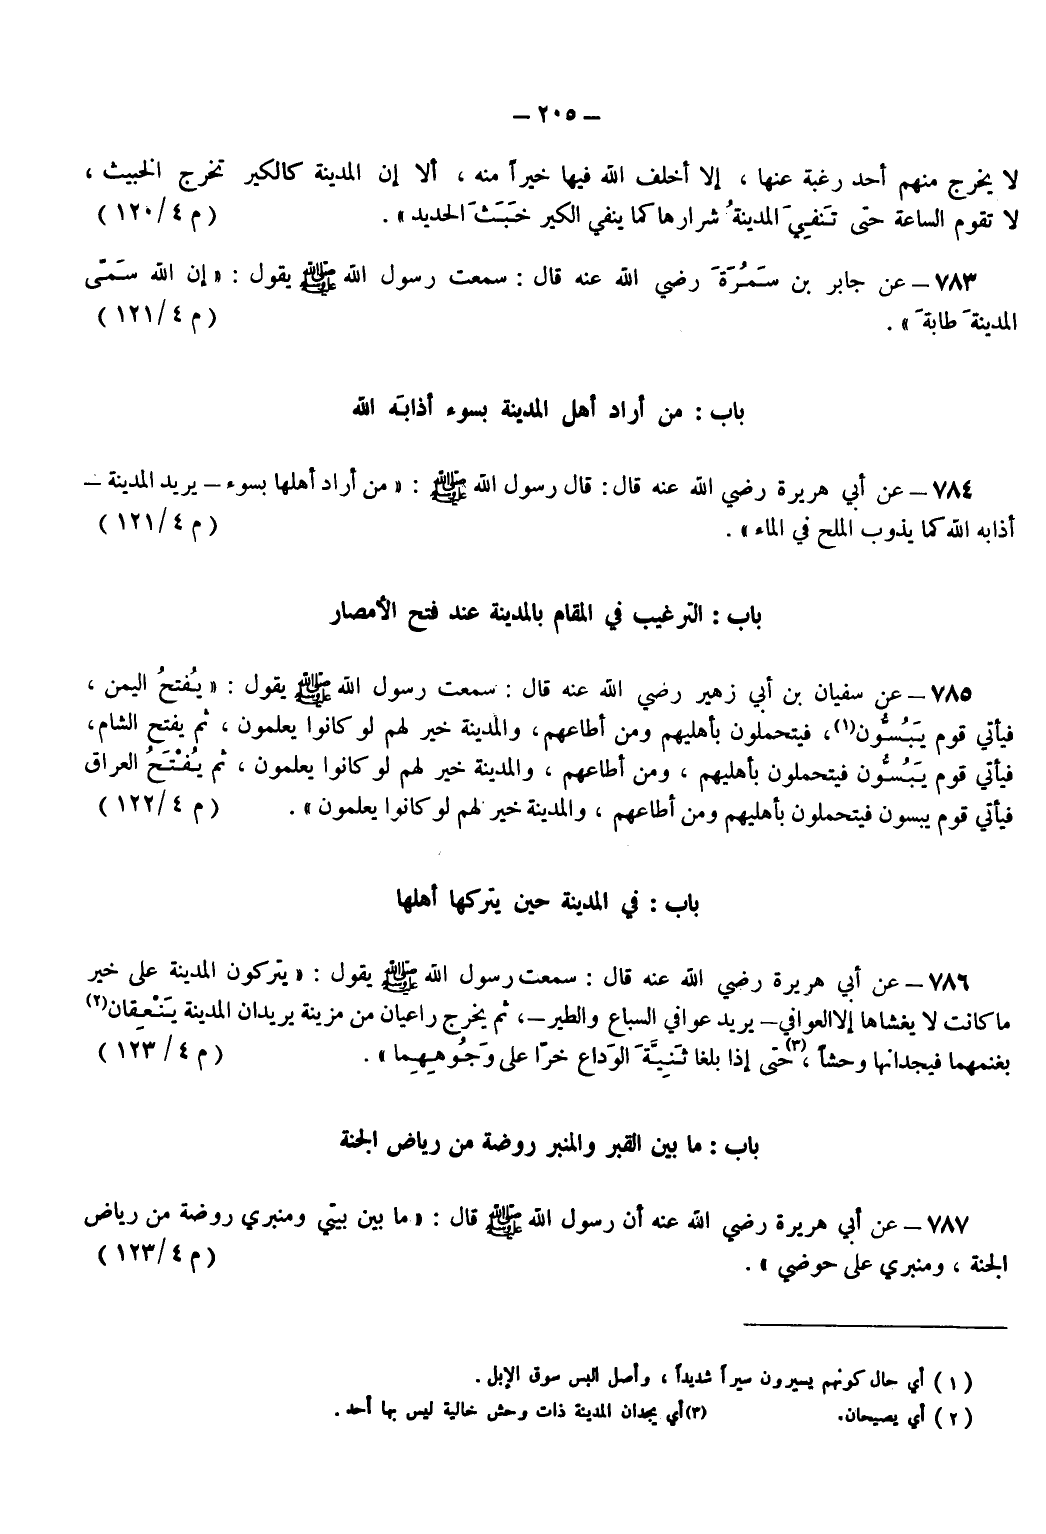 – ٢٠٥ –
لا يخرج منهم أحد رغبة عنها ، إلا أخلف الله فيها خيراً منه ، ألا إن المدينة كالكير تخرج الخبيث ،
لا تقوم الساعة حتى تَنفيَ المدينةُ شرارها كما ينفي الكير خَبَثَ الحديد » . ( م ٤/١٢٠ )
٧٨٣ – عن جابر بن سَمُرَةَ رضي الله عنه قال : سمعت رسول الله ﷺ يقول : « إن الله سَمّى
المدينةَ طابةَ » . ( م ٤/١٢١ )
باب : من أراد أهل المدينة بسوء أذابَه الله
٧٨٤ – عن أبي هريرة رضي الله عنه قال : قال رسول الله ﷺ : « من أراد أهلها بسوء – يريد المدينة –
أذابه الله كما يذوب الملح في الماء » . ( م ٤/١٢١ )
باب : الترغيب في المقام بالمدينة عند فتح الأمصار
٧٨٥ – عن سفيان بن أبي زهير رضي الله عنه قال : سمعت رسول الله ﷺ يقول : « يُفتحُ اليمن ،
فيأتي قوم يَبُسُّون(١)، فيتحملون بأهليهم ومن أطاعهم، والمدينة خير لهم لو كانوا يعلمون ، ثم يفتح الشام،
فيأتي قوم يَبُسُّون فيتحملون بأهليهم ، ومن أطاعهم ، والمدينة خير لهم لو كانوا يعلمون ، ثم يُفْتَحُ العراق
فيأتي قوم يبسون فيتحملون بأهليهم ومن أطاعهم ، والمدينة خير لهم لو كانوا يعلمون » . ( م ٤/١٢٢ )
باب : في المدينة حين يتركها أهلها
٧٨٦ – عن أبي هريرة رضي الله عنه قال : سمعت رسول الله ﷺ يقول : « يتركون المدينة على خير
ما كانت لا يغشاها إلا العوافي – يريد عوافي السباع والطير –، ثم يخرج راعيان من مزينة يريدان المدينة يَنْعِقان(٢)
بغنمهما فيجدانها وحشاً ،(٣)حتى إذا بلغا ثَنِيَّةَ الوَداع خرّا على وَجُوهِهِما » . ( م ٤/ ١٢٣ )
باب : ما بين القبر والمنبر روضة من رياض الجنة
٧٨٧ – عن أبي هريرة رضي الله عنه أن رسول الله ﷺ قال : « ما بين بيتي ومنبري روضة من رياض
الجنة ، ومنبري على حوضي » . ( م ٤/١٢٣ )
( ١ ) أي حال كونهم يسيرون سيراً شديداً ، وأصل البس سوق الإبل .
( ٢ ) أي يصيحان. (٣)أي يجدان المدينة ذات وحش خالية ليس بها أحد .